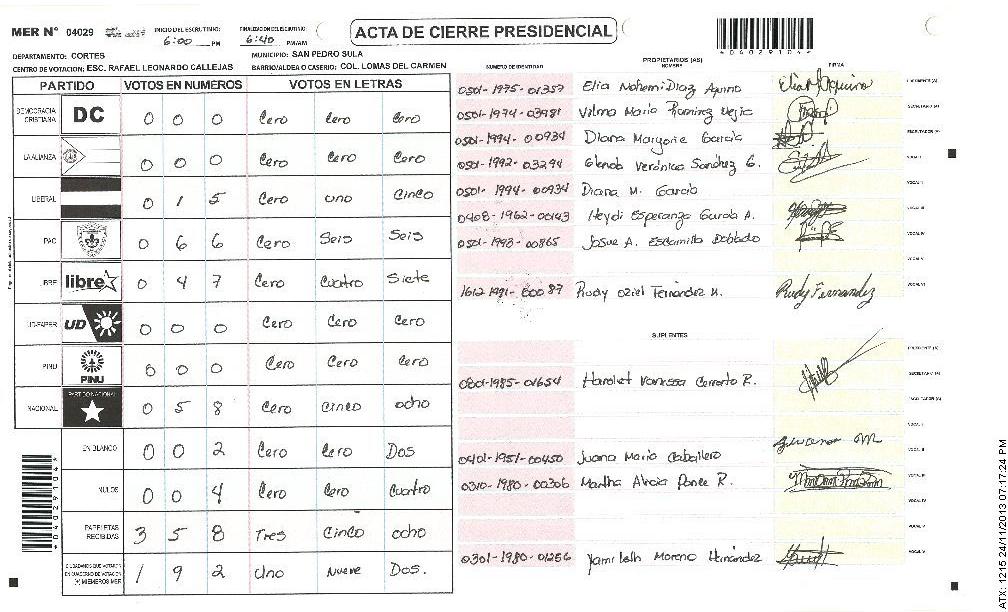 MER N° 04029 INICIO DEL ESCRUTINIO: 6:00 PM FINALIZACION DEL ESCRUTINIO: 6:40 PM/AM
ACTA DE CIERRE PRESIDENCIAL
*04029104*
DEPARTAMENTO: CORTES MUNICIPIO: SAN PEDRO SULA
CENTRO DE VOTACION: ESC. RAFAEL LEONARDO CALLEJAS BARRIO/ALDEA O CASERIO: COL. LOMAS DEL CARMEN
PARTIDO VOTOS EN NUMEROS VOTOS EN LETRAS
DEMOCRACIA CRISTIANA DC 0 0 0 Cero Cero Cero
LA ALIANZA 0 0 0 Cero Cero Cero
LIBERAL 0 1 5 Cero uno cinco
PAC 0 6 6 Cero Seis Seis
LIBRE libre 0 4 7 Cero Cuatro Siete
UD-FAPER UD 0 0 0 Cero Cero Cero
PINU PINU 0 0 0 Cero Cero Cero
NACIONAL PARTIDO NACIONAL 0 5 8 Cero cinco ocho
EN BLANCO 0 0 2 Cero Cero Dos
NULOS 0 0 4 Cero Cero Cuatro
PAPELETAS RECIBIDAS 3 5 8 Tres Cinco ocho
CIUDADANOS QUE VOTARON EN CUADERNO DE VOTACION (+) MIEMBROS MER 1 9 2 Uno Nueve Dos.
PROPIETARIOS (AS)
NUMERO DE IDENTIDAD NOMBRE FIRMA
0501-1975-01357 Elia Nohemi Diaz Aquino PRESIDENTE (A)
0501-1974-03981 Vilma Maria Ramirez Mejia SECRETARIO (A)
0501-1994-00934 Diana Marjorie Garcia ESCRUTADOR (A)
0501-1992-03294 Glenda Verónica Sanchez G. VOCAL I
0501-1994-00934 Diana M. Garcia VOCAL II
0408-1962-00143 Heydi Esperanza Garcia A. VOCAL III
0501-1993-00865 Josue A. Escamilla Doblado VOCAL IV
VOCAL V
1612-1991-00087 Rudy Oziel Fernández M. Rudy Fernandez VOCAL VI
SUPLENTES
PRESIDENTE (A)
0801-1985-01654 Harolet Vanessa Cerrato R. SECRETARIO (A)
ESCRUTADOR (A)
VOCAL I
0401-1951-00450 Juana Maria Caballero VOCAL II
0310-1980-00306 Martha Alicia Ponce R. VOCAL III
VOCAL IV
VOCAL V
0301-1980-01256 Yamileth Moreno Hernández
*04029104*
ATX: 1215 24/11/2013 07:17:24 PM